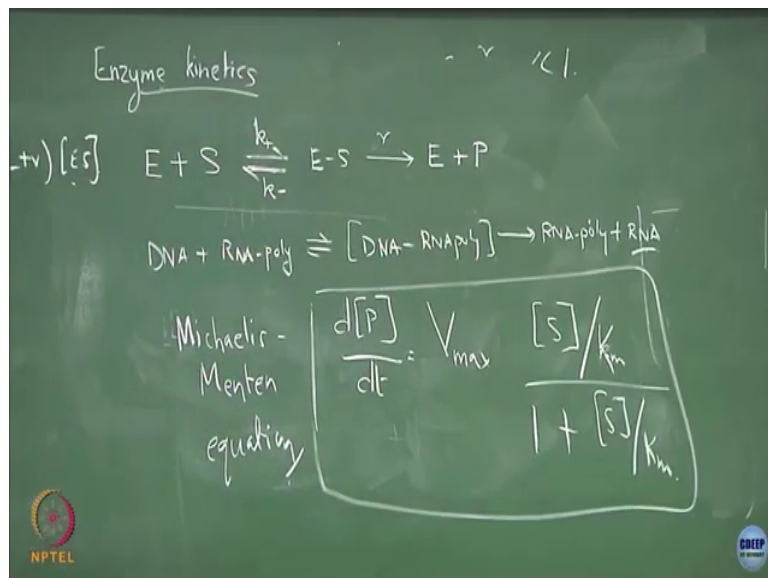 Enzyme kinetics
- r << 1.
+r) [ES]
E + S ⇌ E-S → E + P
k+
k-
r
DNA + RNA-poly ⇌ [DNA-RNApoly] → RNA-poly + RNA
Michaelis-
Menten
equation
d[P]/dt = Vmax [S]/Km / 1 + [S]/Km.
NPTEL
CDEEP